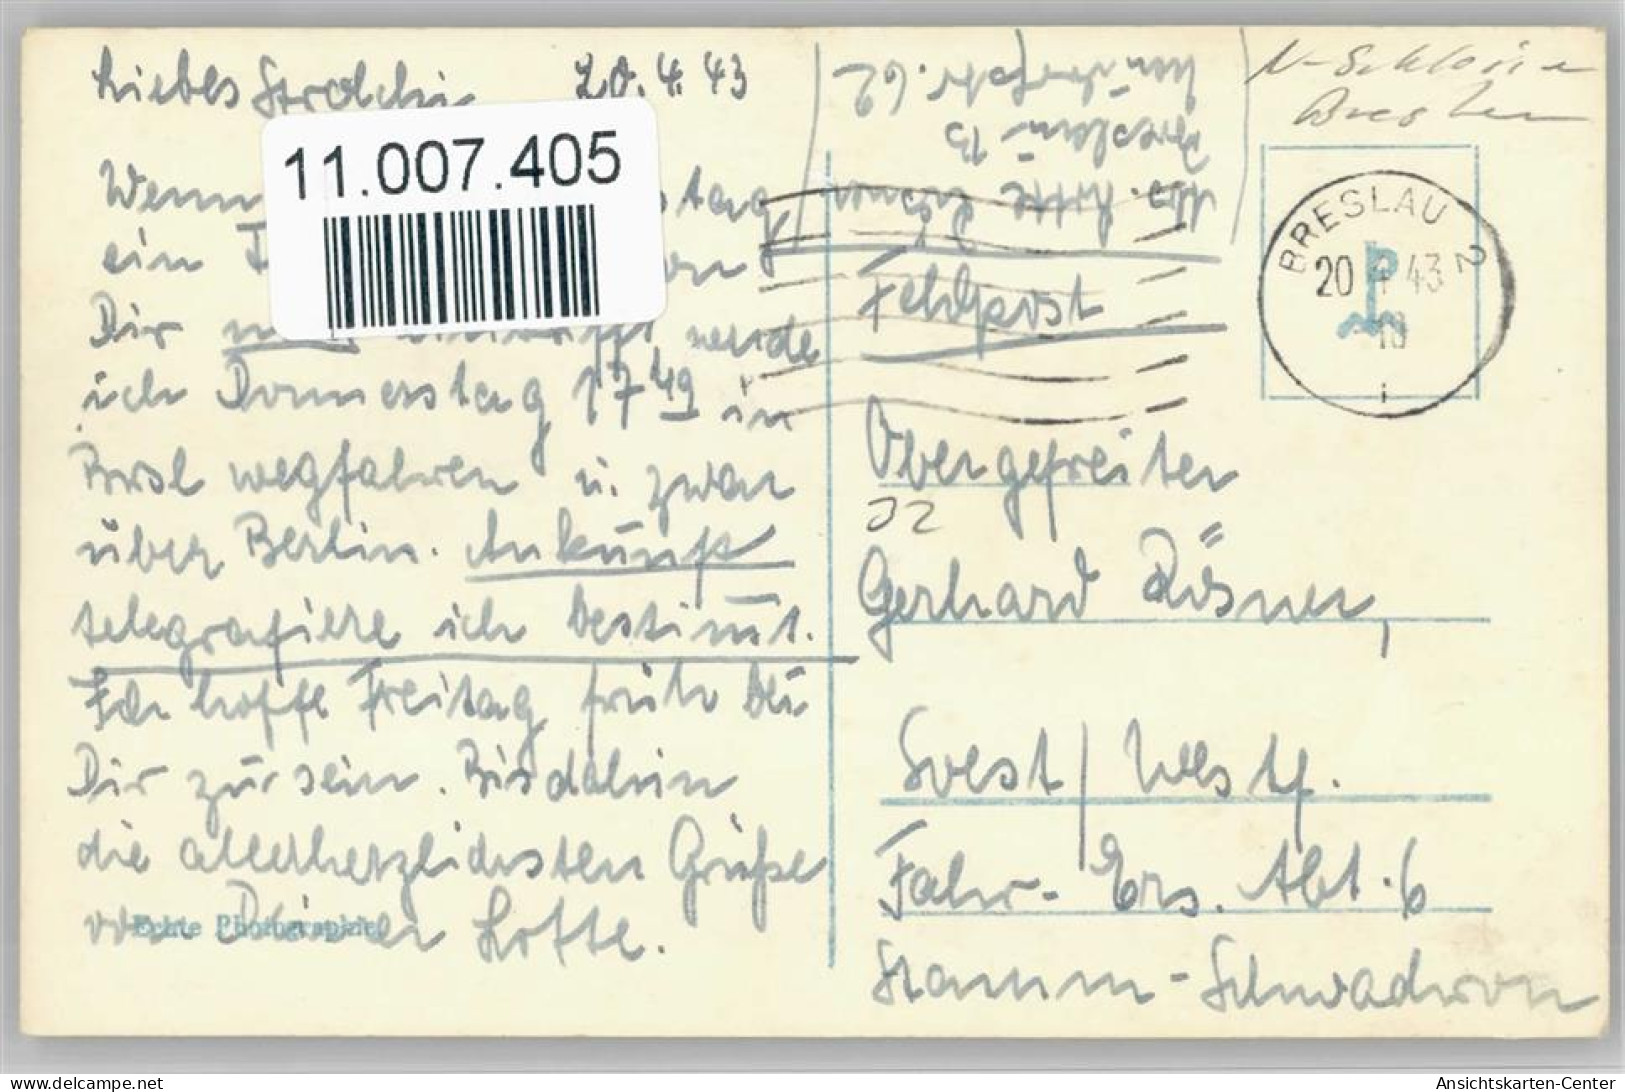 Liebes Strolchi 20.4.43
11.007.405
Wenn stag
ein von
Dir eintrifft werde
ich Donnerstag 17 49 in
Brsl wegfahren u. zwar
über Berlin. Ankunft
telegrafiere ich bestimmt.
Ich hoffe Freitag früh bei
Dir zu sein. Bis dahin
die allerherzlichsten Grüße
von Deiner Lotte.
Echte Photographie
Abs. Lotte
Breslau 13
62
N-Schles
Breslau
BRESLAU 2
20 4 43
Feldpost
Obergefreiten
Gerhard Rösner,
Soest / Westf.
Fahr-Ers. Abt. 6
Stamm-Schwadron
Ansichtskarten-Center
delcampe.net